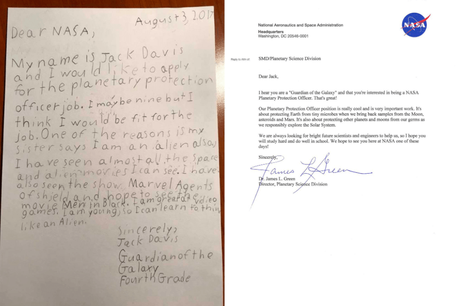 August 3, 2017
Dear NASA,
My name is Jack Davis
and I would like to apply
for the planetary protection
officer job. I may be nine but I
think I would be fit for the
job. One of the reasons is my
sister says I am an alien also
I have seen almost all the space
and alien movies I can see. I have
also seen the show Marvel Agents
of Shield and hope to see the
movie Men in Black. I am great at video
games. I am young, so I can learn to think
like an Alien.
Sincerely,
Jack Davis
Guardian of the
Galaxy
Fourth Grade
National Aeronautics and Space Administration
Headquarters
Washington, DC 20546-0001
NASA
Reply to Attn of:
SMD/Planetary Science Division
Dear Jack,
I hear you are a "Guardian of the Galaxy" and that you're interested in being a NASA
Planetary Protection Officer. That's great!
Our Planetary Protection Officer position is really cool and is very important work. It's
about protecting Earth from tiny microbes when we bring back samples from the Moon,
asteroids and Mars. It's also about protecting other planets and moons from our germs as
we responsibly explore the Solar System.
We are always looking for bright future scientists and engineers to help us, so I hope you
will study hard and do well in school. We hope to see you here at NASA one of these
days!
Sincerely,
James L Green
Dr. James L. Green
Director, Planetary Science Division